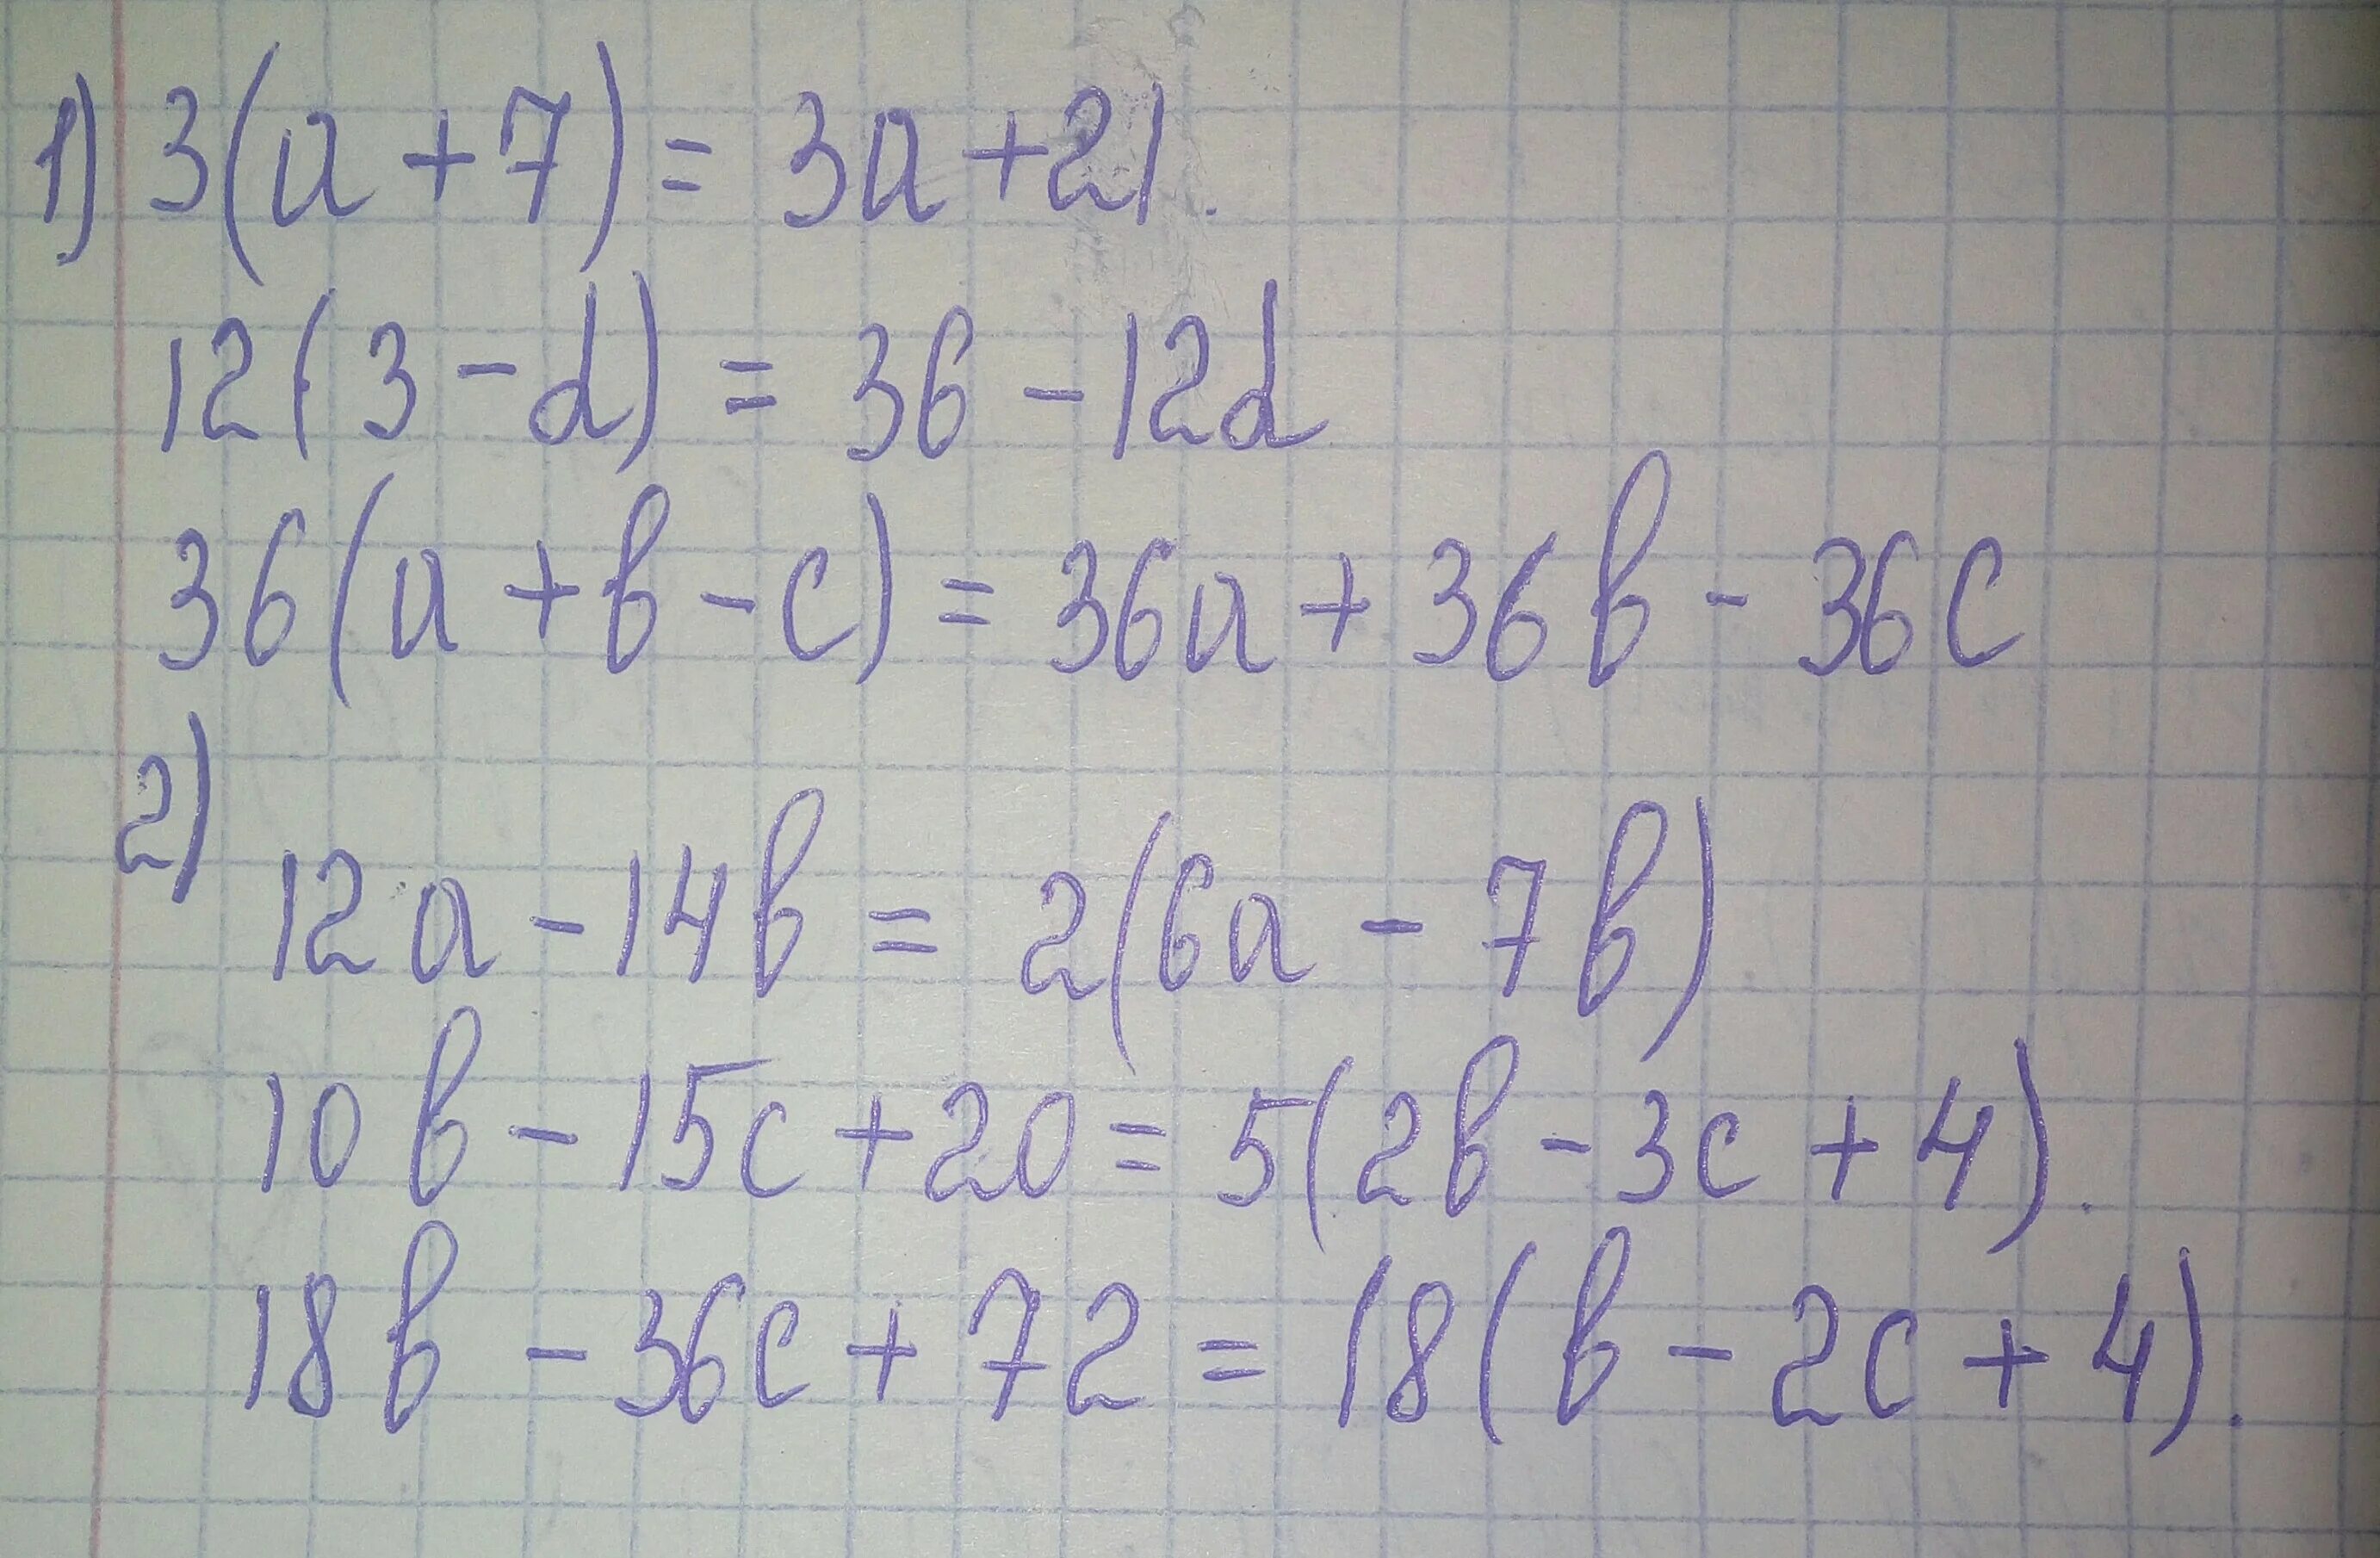 1) 3(a + 7) = 3a + 21.
12(3 - d) = 36 - 12d
36(a + b - c) = 36a + 36b - 36c
2)
12a - 14b = 2(6a - 7b)
10b - 15c + 20 = 5(2b - 3c + 4).
18b - 36c + 72 = 18(b - 2c + 4).